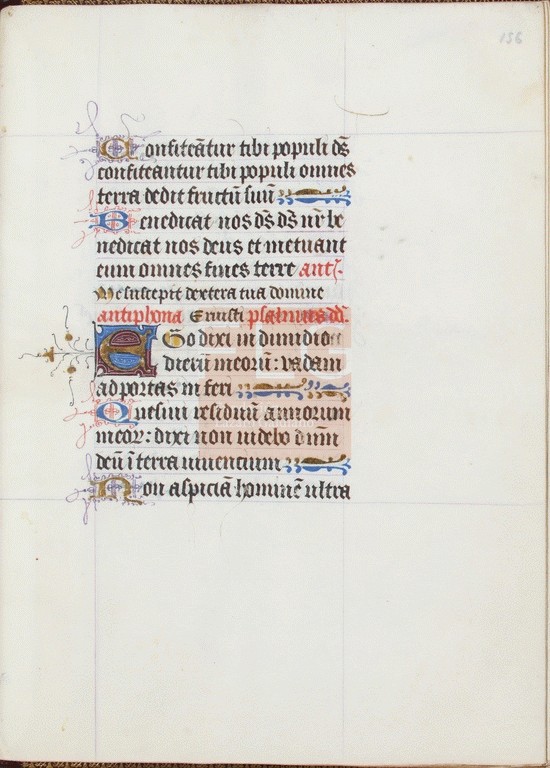 156
Confiteātur tibi populi d̄s
confiteantur tibi populi omnes
terra dedit fructū suū
Benedicat nos d̄s d̄s n̄r be
nedicat nos deus et metuant
eum omnes fines terre ant
Me suscepit dextera tua domine
antiphona Eruisti psalmus d̄d.
Ego dixi in dimidio
dierū meorū: vadam
ad portas in feri
Quesiui residuū annorum
meoꝝ: dixi non uidebo dnm
deū ī terra uiuentium
Non aspiciā hominē ultra